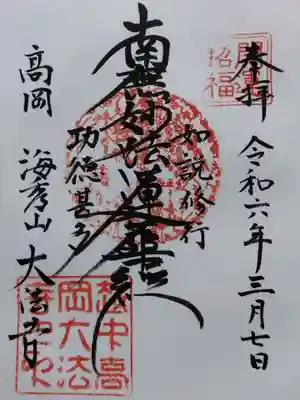 奉拝
令和六年三月七日
如説修行
南無妙法蓮華経
功徳甚多
高岡
海秀山
大法寺
開運
招福
越中高
岡大法